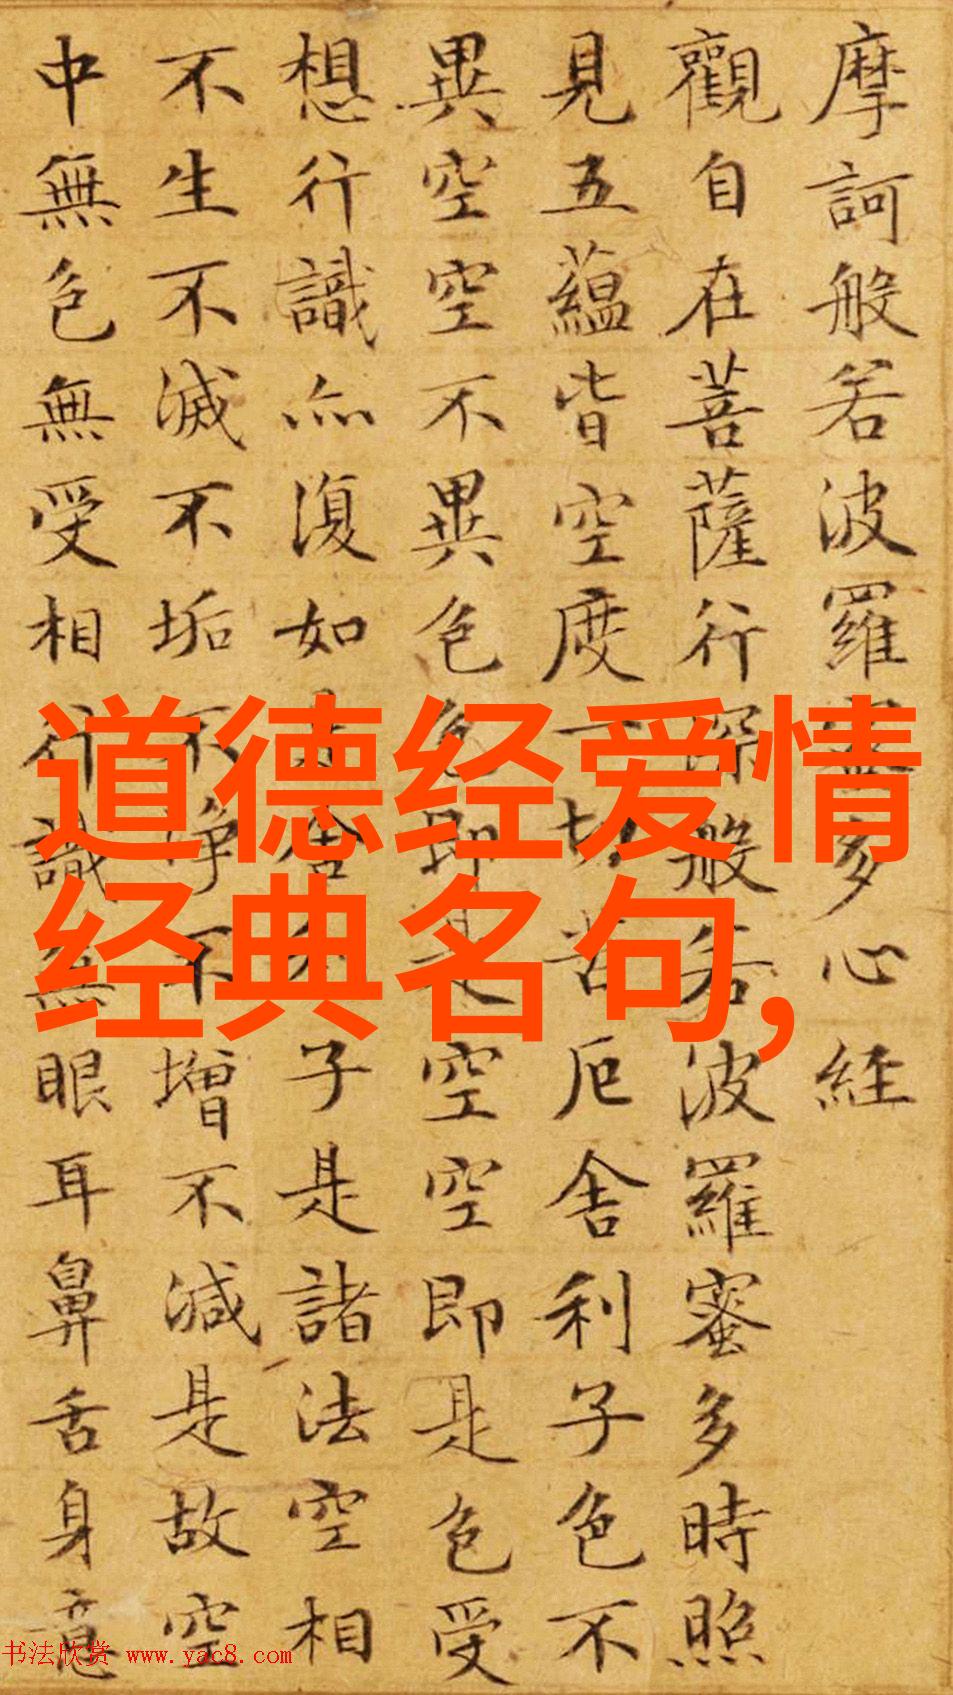 摩訶般若波羅蜜多心経
觀自在菩薩行深般若波羅蜜多時照
見五蘊皆空度一切苦厄舍利子色不
異空空不異色色即是空空即是色受
想行識亦復如是舍利子是諸法空相
不生不滅不垢不淨不增不減是故空
中無色無受相行識無眼耳鼻舌身意
道德经爱情
经典名句,
书法欣赏 www.yac8.com